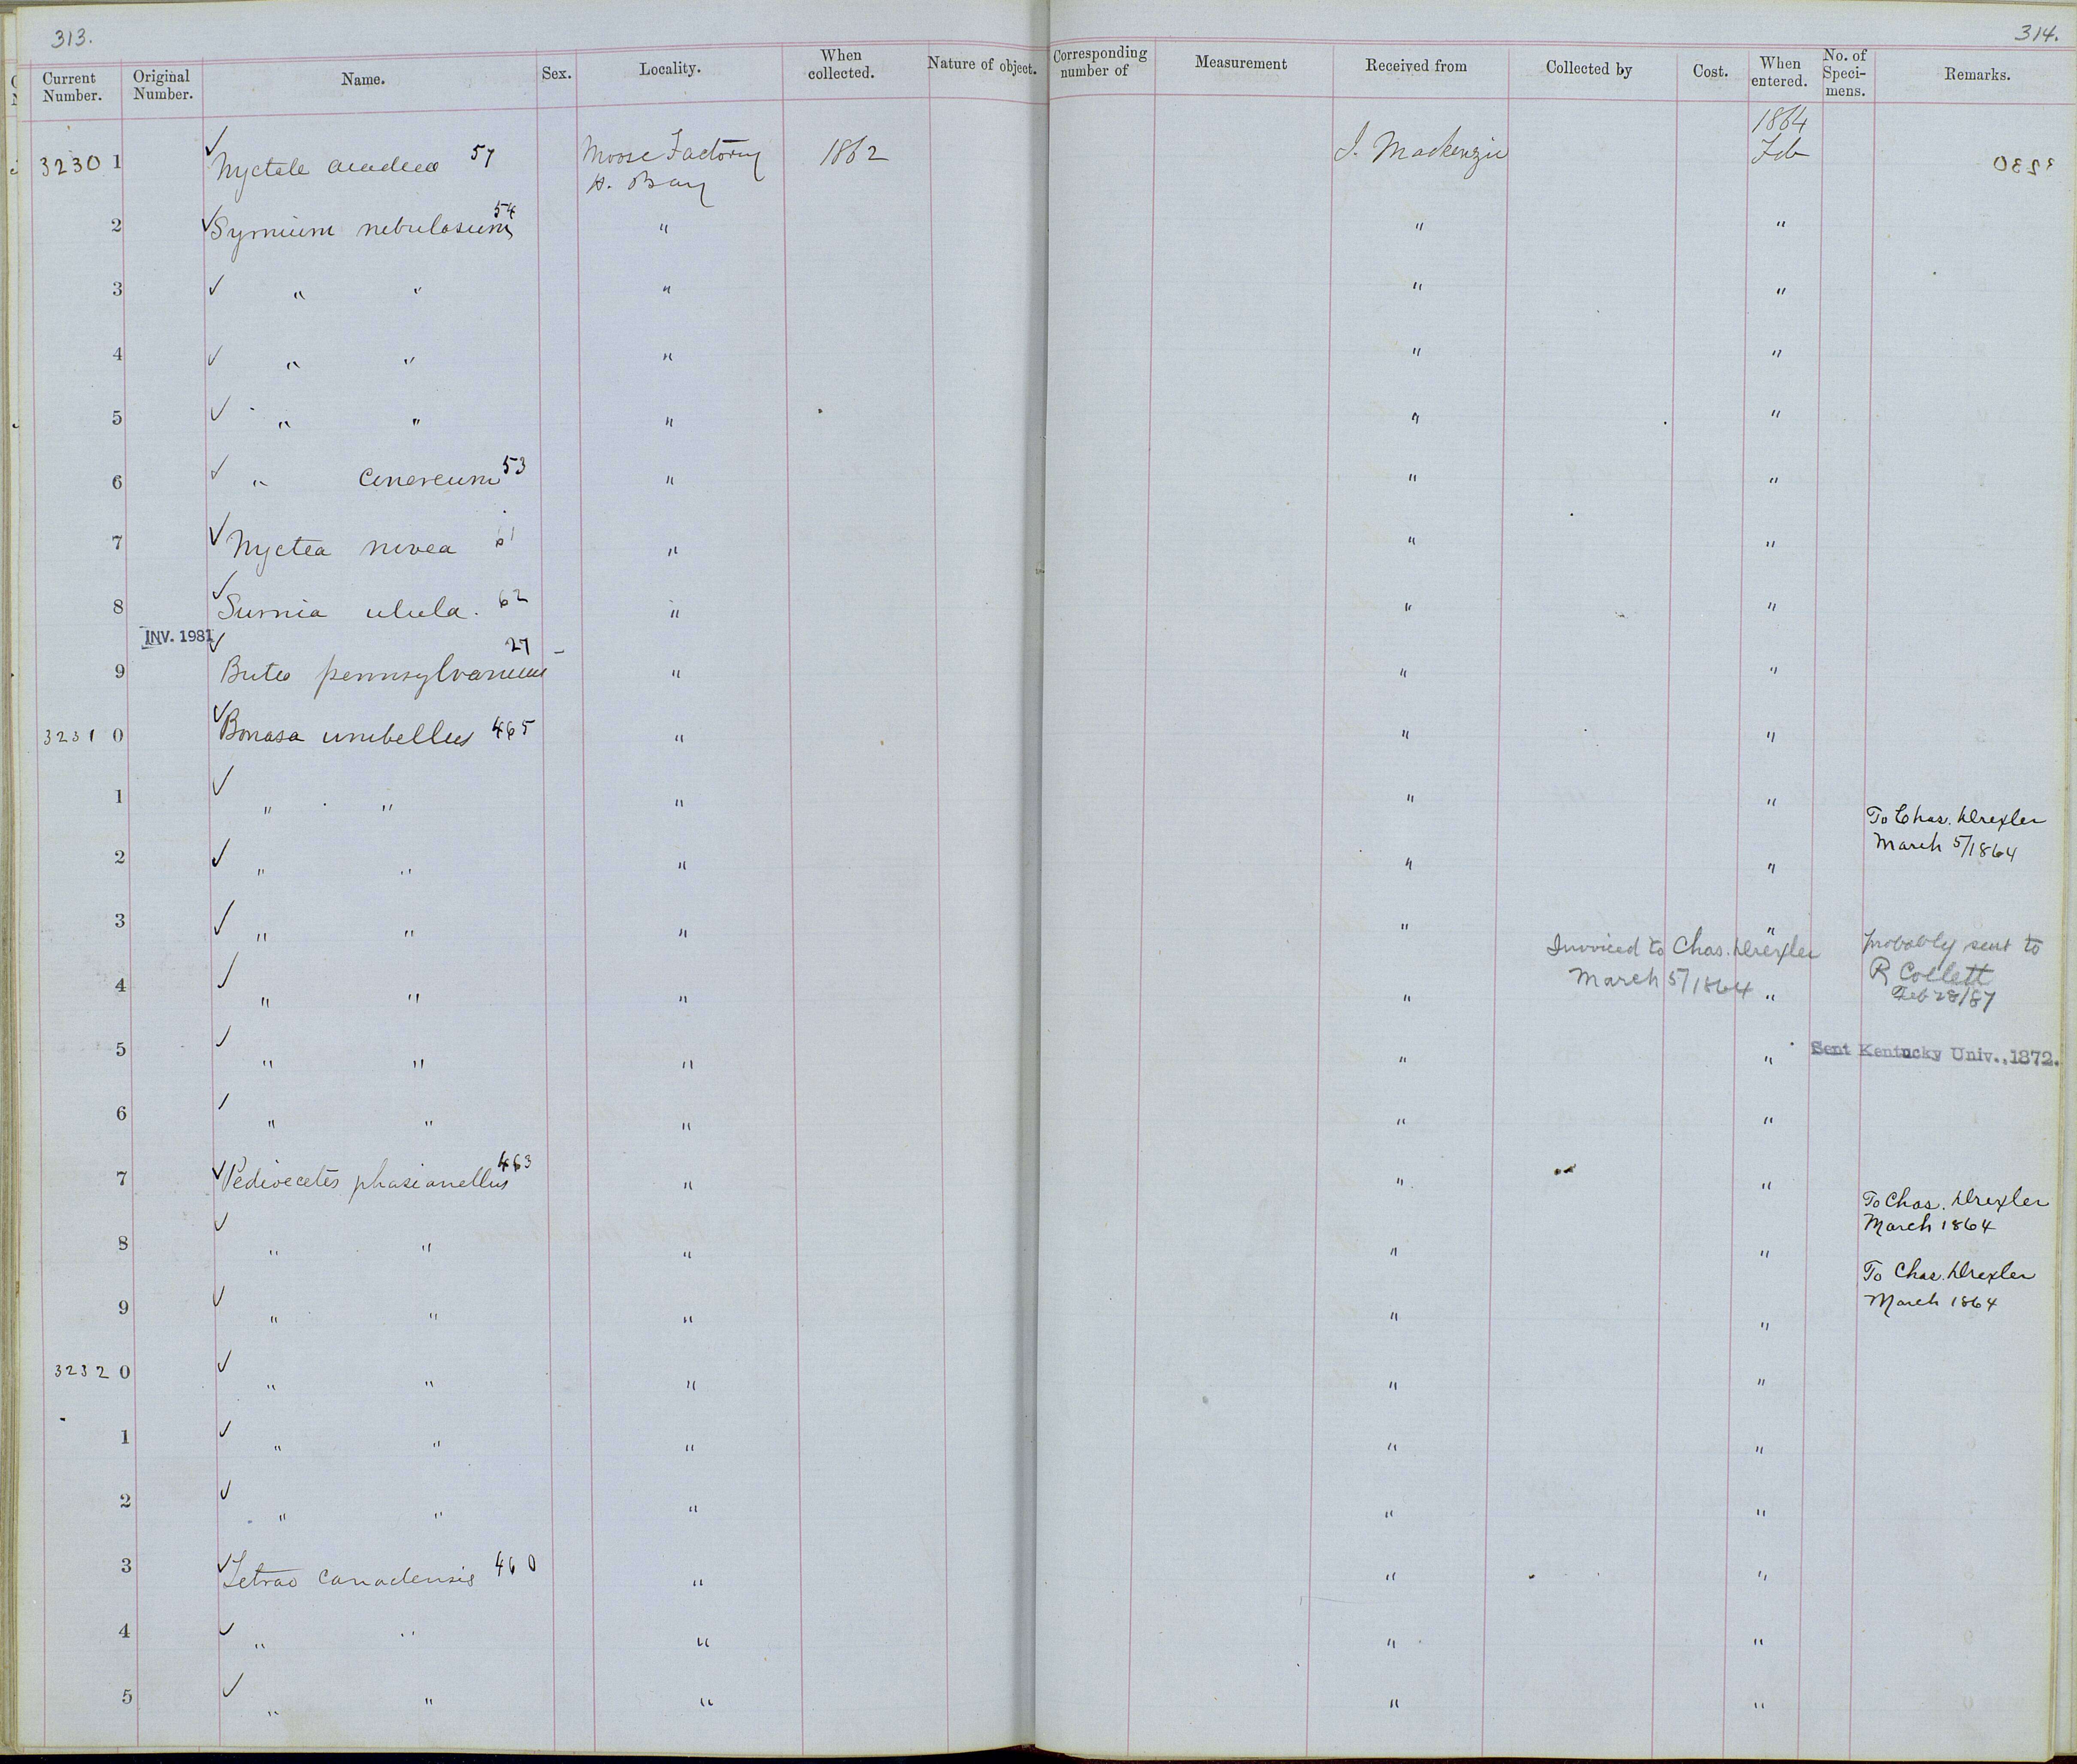 313.
314.
Current Number.
Original Number.
Name.
Sex.
Locality.
When collected.
Nature of object.
Corresponding number of
Measurement
Received from
Collected by
Cost.
When entered.
No. of Speci-mens.
Remarks.
1864
32301 ✓ Nyctale acadica 57 Moose Factory 1862 J. Mackenzie Feb
H. Bay
2 ✓ Syrnium nebulosum 54 " " "
3 ✓ " " " " "
4 ✓ " " " " "
5 ✓ " " " " "
6 ✓ " Cinereum 53 " " "
7 ✓ Nyctea nivea 61 " " "
8 ✓ Surnia ulula. 62 " " "
INV. 1981
9 ✓ Buteo pennsylvanicus 27 " " "
32310 ✓ Bonasa umbellus 465 " " "
1 ✓ " " " " " To Chas. Drexler
March 5/1864
2 ✓ " " " " "
3 ✓ " " " " "
Invoiced to Chas. Drexler
March 5/1864
probably sent to
R Collett
Feb 28/87
4 ✓ " " " " "
5 ✓ " " " " " Sent Kentucky Univ., 1872.
6 ✓ " " " " "
7 ✓ Pedioecetes phasianellus 463 " " "
8 ✓ " " " " " To Chas. Drexler
March 1864
9 ✓ " " " " " To Chas. Drexler
March 1864
32320 ✓ " " " " "
1 ✓ " " " " "
2 ✓ " " " " "
3 ✓ Tetrao Canadensis 460 " " "
4 ✓ " " " " "
5 ✓ " " " " "